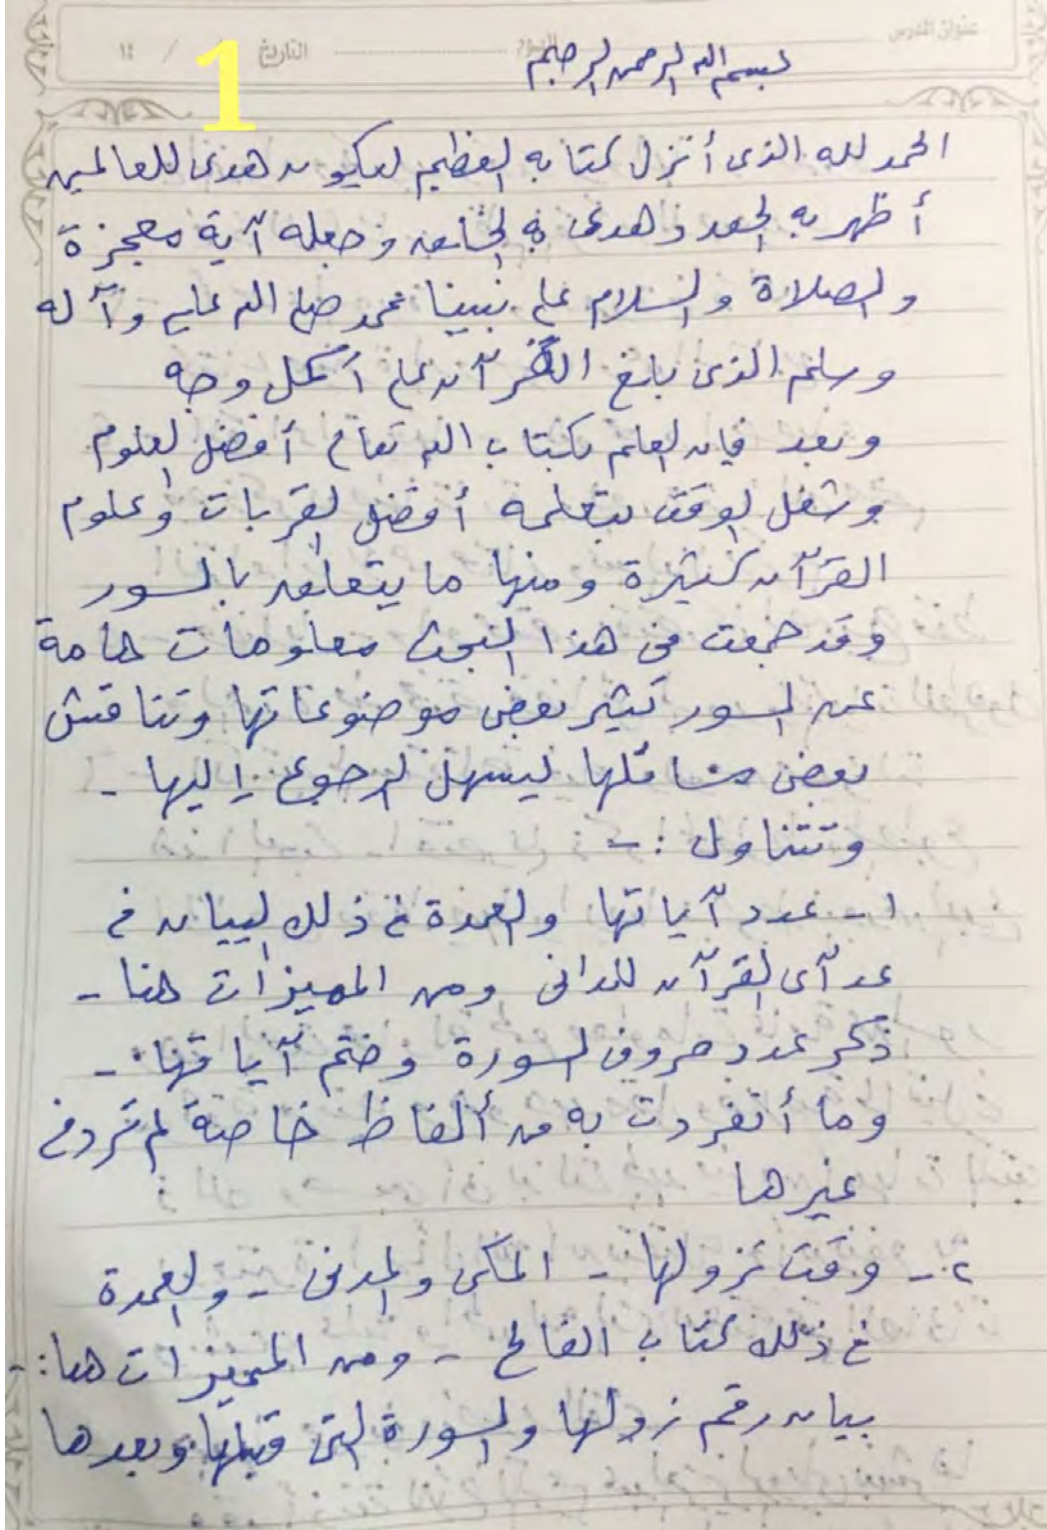 عنوان الدرس اليوم التاريخ / / ١٤
1
بسم الله الرحمن الرحيم
الحمد لله الذى أنزل كتابه العظيم ليكون هدى للعالمين
أظهر به الحق وهدى به الخلق وجعله آية معجزة
والصلاة والسلام على نبينا محمد صلى الله عليه وآله
وسلم الذى بلغ القرآن على أكمل وجه
وبعد فإن العلم بكتاب الله تعالى أفضل العلوم
وشغل الوقت بتعلمه أفضل القربات وعلوم
القرآن كثيرة ومنها ما يتعلق بالسور
وقد جمعت فى هذا البحث معلومات هامة
عن السور تثير بعض موضوعاتها وتناقش
بعض مسائلها ليسهل الرجوع إليها -
وتتناول :-
١- عدد آياتها والعمدة فى ذلك البيان فى
عد آى القرآن للدانى ومن المميزات هنا -
ذكر عدد حروف السورة وختم آياتها -
وما أنفردت به من ألفاظ خاصة لم ترد فى
غيرها
٢- وقت نزولها - المكى والمدنى - والعمدة
فى ذلك كتاب - ومن المميزات هنا :-
بيان رقم نزولها والسورة التى قبلها وبعدها